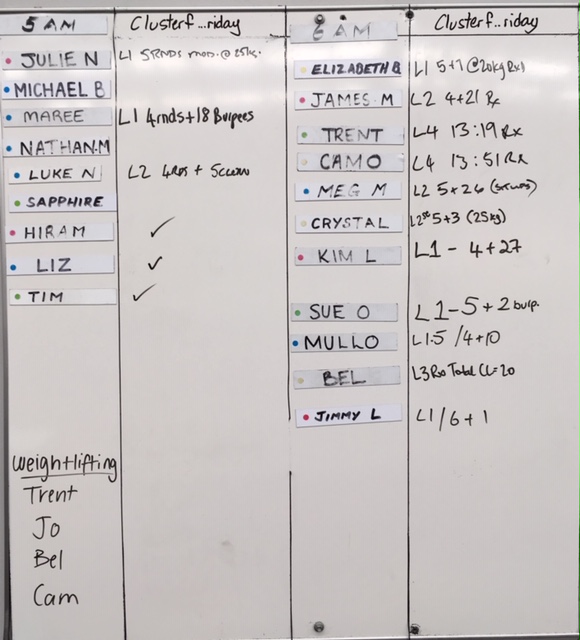 5 AM Clusterf...riday
JULIE N L1 5RNDS mod. @ 25kg.
MICHAEL B
MAREE L1 4rnds+18 Burpees
NATHAN.M
LUKE N L2 4RDS +
SAPPHIRE
HIRAM ✓
LIZ ✓
TIM ✓
Weightlifting
Trent
Jo
Bel
Cam
6 AM Clusterf...riday
ELIZABETH B L1 5+7 @20kg Rx)
JAMES M L2 4+21 Rx
TRENT L4 13:19 Rx
CAMO L4 13:51 Rx
MEG M L2 5+26
CRYSTAL 5+3 (25kg)
KIM L L1 - 4+27
SUE O L1-5+2 burp.
MULLO L1.5 /4+10
BEL L3 Total CL=20
JIMMY L L1/6+1